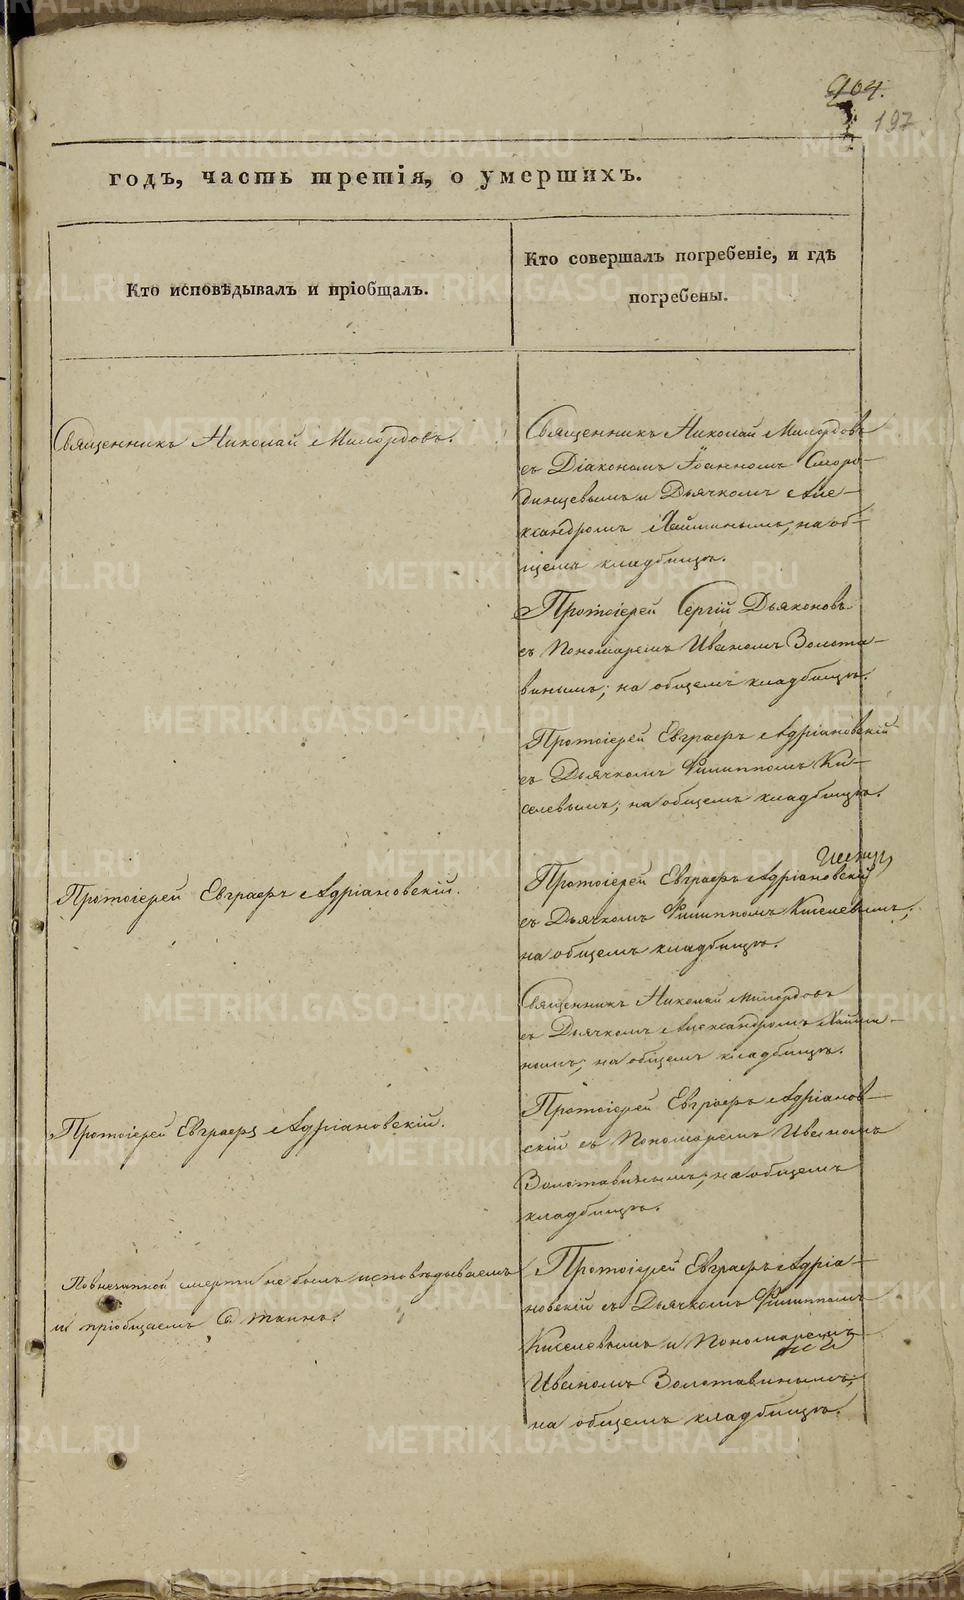 904.
197
годъ, часть третія, о умершихъ.
Кто исповѣдывалъ и пріобщалъ.
Кто совершалъ погребеніе, и гдѣ
погребены.
Священникъ Николай Милордовъ.
Священникъ Николай Милордовъ
съ Діакономъ Іоанномъ Сморо-
динцевымъ и Дьячкомъ Але-
ксандромъ на об-
щемъ кладбищѣ.
Протоіерей Сергій Дьяконовъ
съ Пономаремъ Иваномъ Золота-
винымъ; на общемъ кладбищѣ.
Протоіерей Евграфъ Адріановскій
съ Дьячкомъ Филиппомъ Ки-
селевымъ; на общемъ кладбищѣ.
Протоіерей Евграфъ Адріановскій.
Протоіерей Евграфъ Адріановскій
съ Дьячкомъ Филиппомъ Киселевымъ;
на общемъ кладбищѣ.
Священникъ Николай Милордовъ
съ Дьячкомъ Александромъ
нымъ; на общемъ кладбищѣ.
Протоіерей Евграфъ Адріановскій.
Протоіерей Евграфъ Адріанов-
скій съ Пономаремъ Иваномъ
Золотавинымъ; на общемъ
кладбищѣ.
Повнезапной смерти не былъ исповѣдываемъ
и пріобщаемъ С. таинъ.
Протоіерей Евграфъ Адріа-
новскій съ Дьячкомъ Филиппомъ
Киселевымъ и Пономаремъ
Иваномъ Золотавинымъ;
на общемъ кладбищѣ.
METRIKI.GASO-URAL.RU